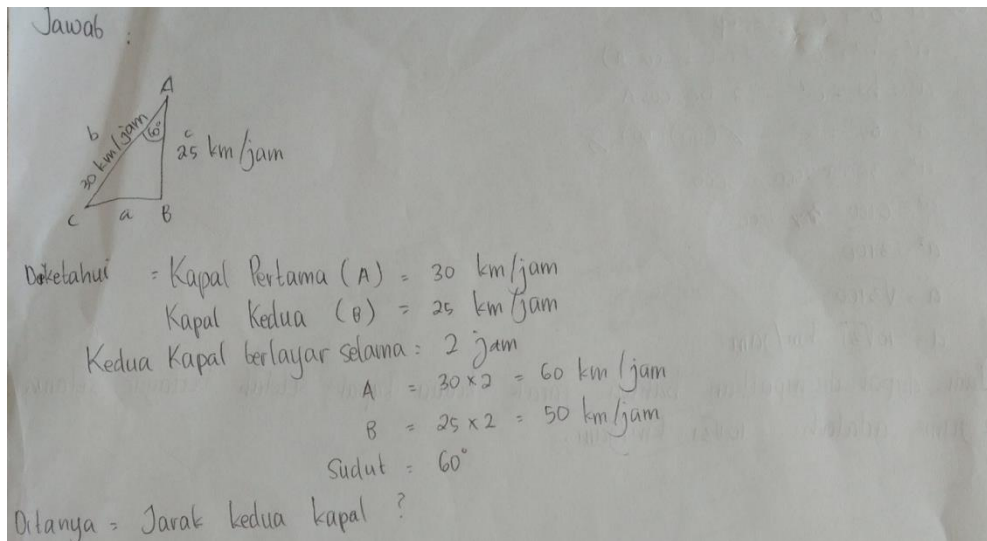 Jawab :
A
b
30 km/jam
60°
c
25 km/jam
C
a
B
Diketahui = Kapal Pertama (A) = 30 km/jam
Kapal Kedua (B) = 25 km/jam
Kedua Kapal berlayar selama = 2 jam
A = 30 x 2 = 60 km/jam
B = 25 x 2 = 50 km/jam
Sudut = 60°
Ditanya = Jarak kedua kapal ?